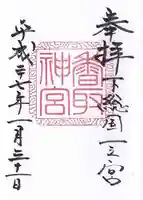 奉拝
下総国一之宮
香取
神宮
平成二十七年一月三十一日